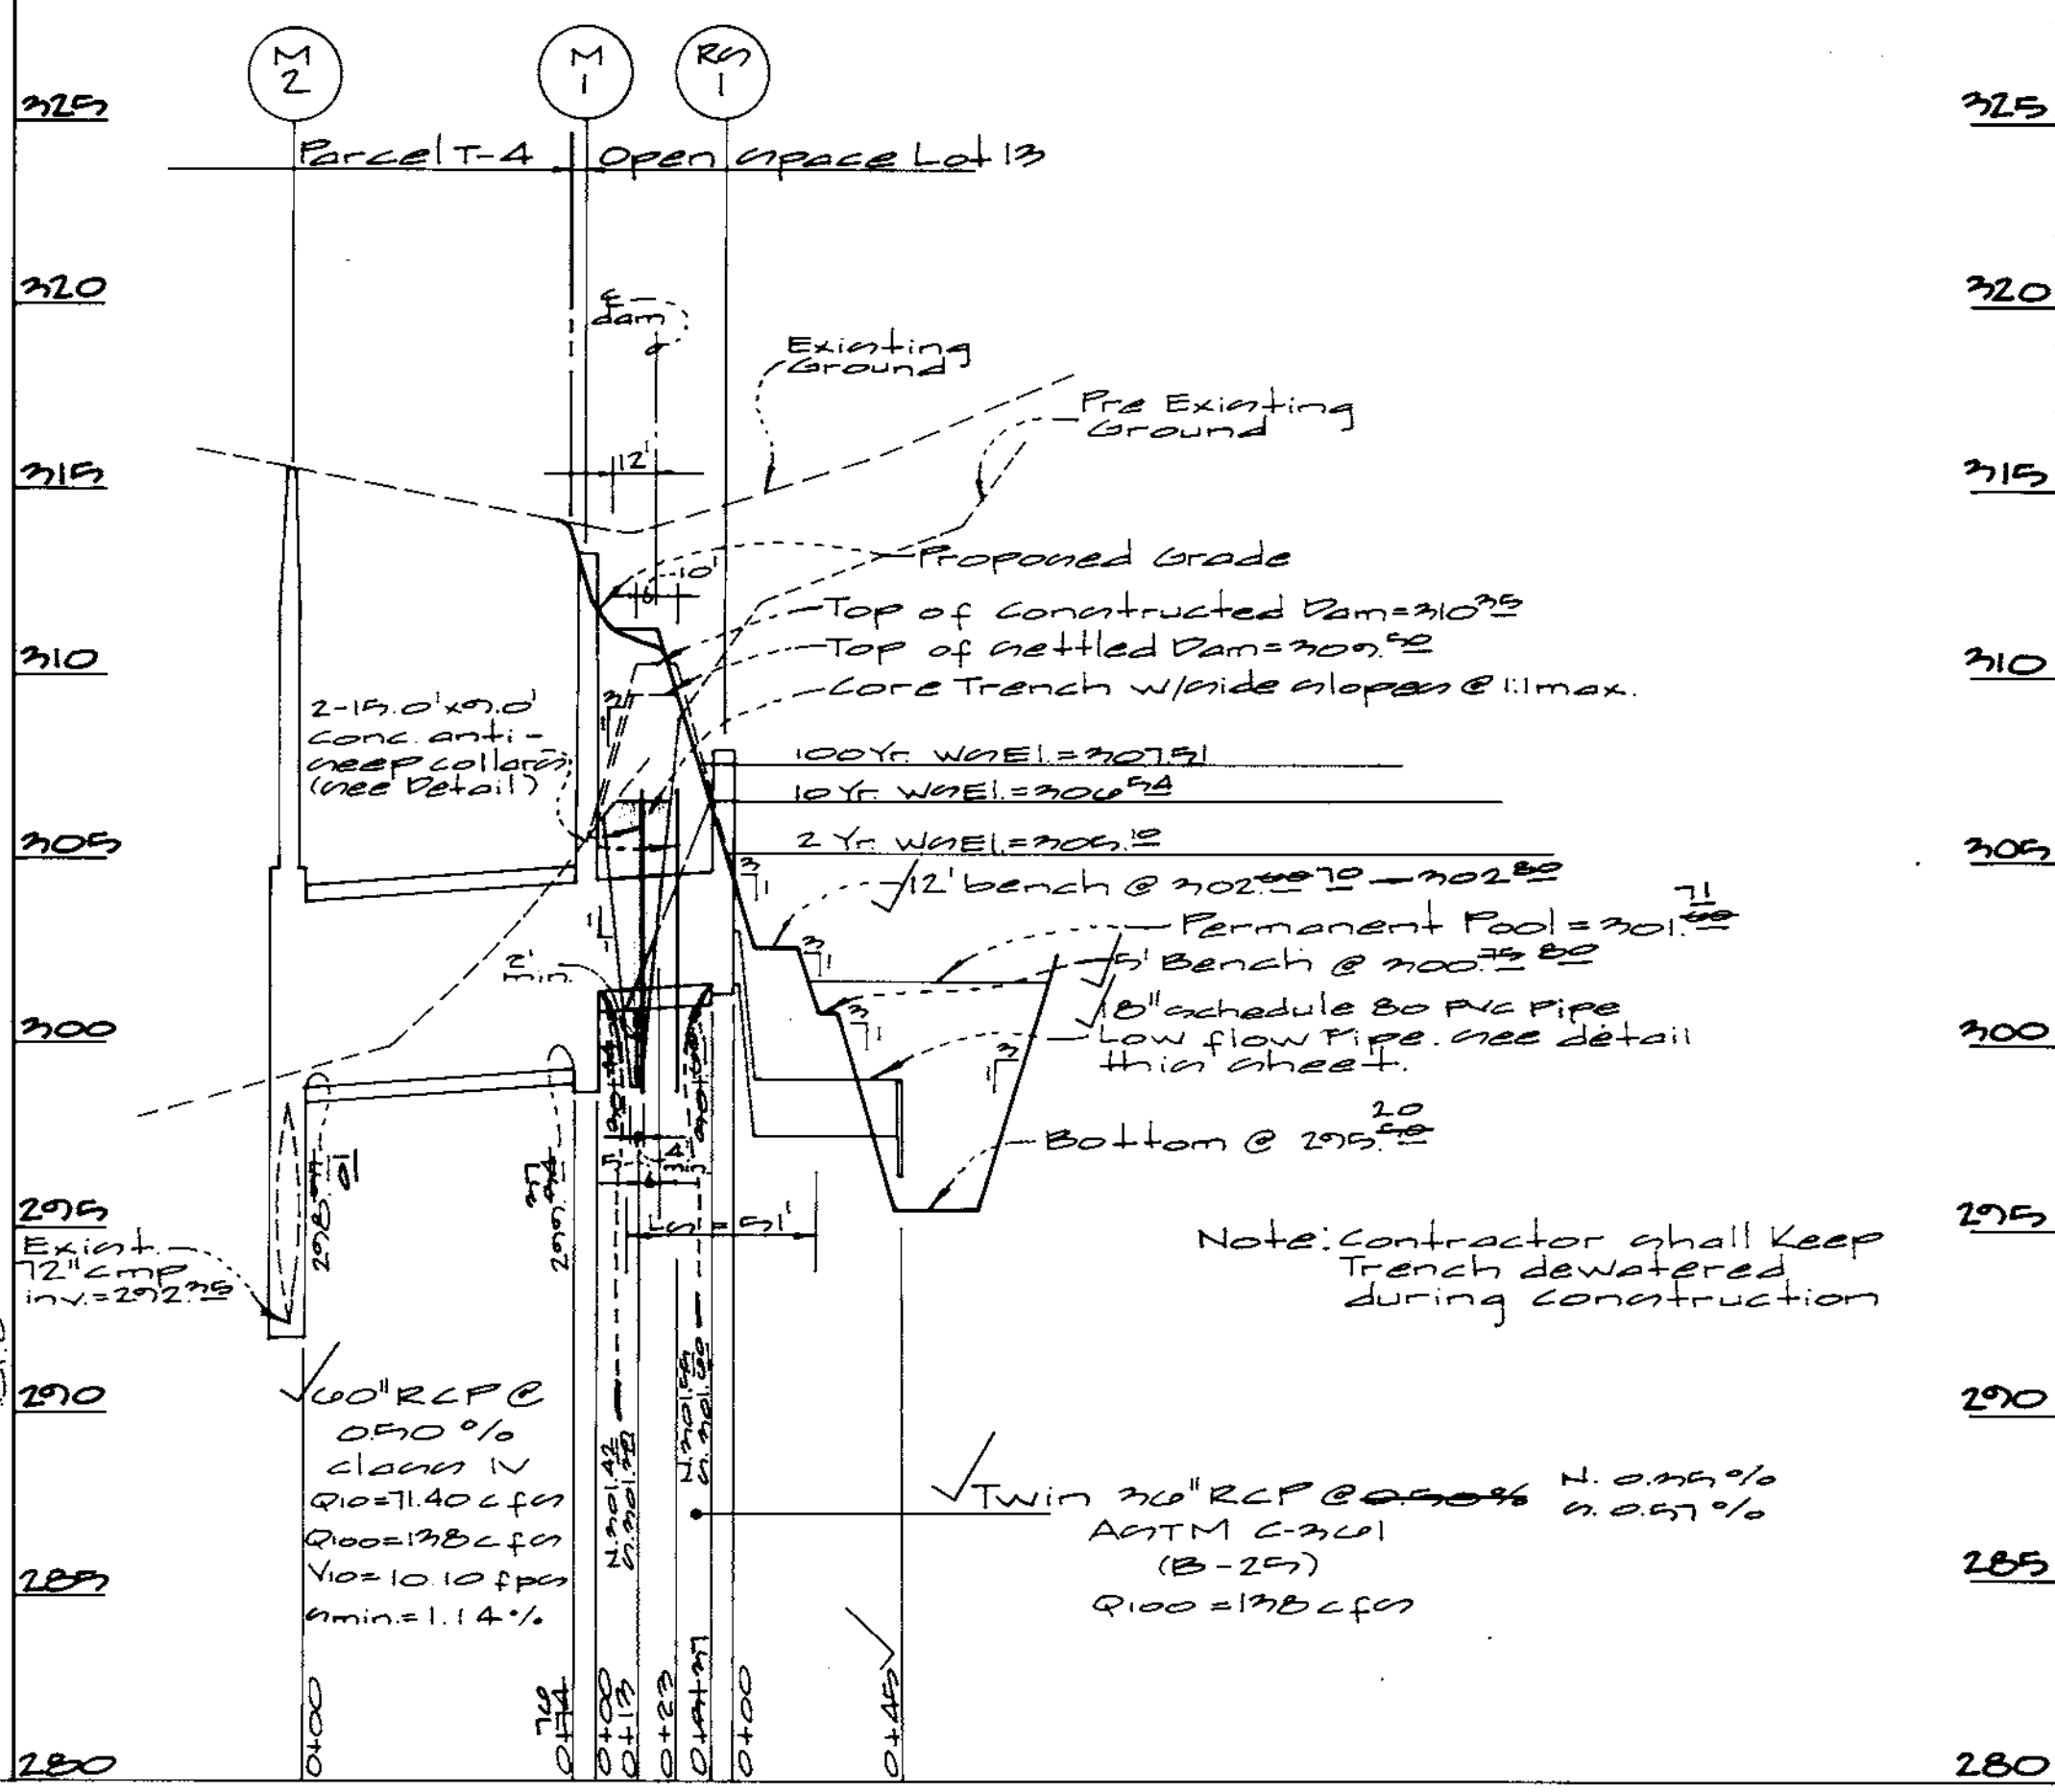 M
2
M
1
RS
1
325
325
Parcel T-4
Open Space Lot 13
320
320
℄
dam
Existing
Ground
Pre Existing
Ground
12'
315
315
Proposed Grade
6' 10'
Top of Constructed Dam=310.35
Top of Settled Dam=309.50
Core Trench w/side slopes @ 1:1 max.
310
310
3
1
2-15.0'x9.0'
Conc. anti-
seep collars
(see Detail)
100 Yr. WSEl.=307.51
10 Yr. WSEl.=306.54
2 Yr. WSEl.=305.10
305
305
3
1
12' bench @ 302.60 70 - 302.80
71
Permanent Pool = 301.60
3
1
5' Bench @ 300.75 80
2'
min.
1
1
18" schedule 80 PVC Pipe
Low flow Pipe. see detail
this sheet.
300
300
3
1
3
1
20
Bottom @ 295.50
4'
298.77
01
37
299.94
295
295
LS = 51'
Exist.
72" cmp
inv.=292.35
Note: Contractor shall Keep
Trench dewatered
during construction
290
290
60" RCP @
0.50 %
class IV
Q10=71.40 cfs
Q100=138 cfs
V10=10.10 fps
Smin.=1.14%
N.301.42
N.301.55
S.301.60
Twin 36" RCP @ 0.50% N. 0.35%
S. 0.57%
ASTM C-361
(B-25)
Q100 =138 cfs
285
285
0+00
76
0+74
0+00
0+13
0+23
0+37
0+00
0+45
280
280